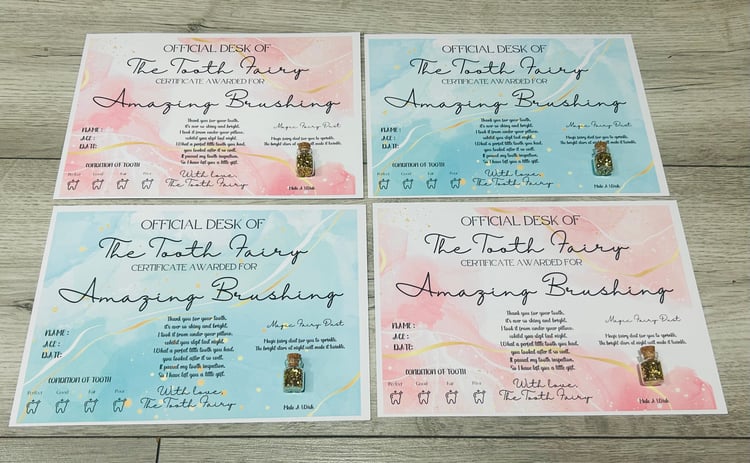 OFFICIAL DESK OF
The Tooth Fairy
CERTIFICATE AWARDED FOR
Amazing Brushing
Thank you for your tooth,
it's so shiny and bright,
I took it from under your pillow,
whilst you slept last night.
What a perfect little tooth you had,
you looked after it so well.
It passed my tooth inspection,
So I have left you a little gift.
NAME :
AGE :
DATE:
Magic Fairy Dust
Magic fairy dust for you to sprinkle.
The bright stars of night will make it twinkle.
CONDITION OF TOOTH
Perfect Good Fair Poor
With love,
The Tooth Fairy
Make A Wish
OFFICIAL DESK OF
The Tooth Fairy
CERTIFICATE AWARDED FOR
Amazing Brushing
Thank you for your tooth,
it's so shiny and bright,
I took it from under your pillow,
whilst you slept last night.
What a perfect little tooth you had,
you looked after it so well.
It passed my tooth inspection,
So I have left you a little gift.
NAME :
AGE :
DATE:
Magic Fairy Dust
Magic fairy dust for you to sprinkle.
The bright stars of night will make it twinkle.
CONDITION OF TOOTH
Perfect Good Fair Poor
With love,
The Tooth Fairy
Make A Wish
OFFICIAL DESK OF
The Tooth Fairy
CERTIFICATE AWARDED FOR
Amazing Brushing
Thank you for your tooth,
it's so shiny and bright,
I took it from under your pillow,
whilst you slept last night.
What a perfect little tooth you had,
you looked after it so well.
It passed my tooth inspection,
So I have left you a little gift.
NAME :
AGE :
DATE:
Magic Fairy Dust
Magic fairy dust for you to sprinkle.
The bright stars of night will make it twinkle.
CONDITION OF TOOTH
Perfect Good Fair Poor
With love,
The Tooth Fairy
Make A Wish
OFFICIAL DESK OF
The Tooth Fairy
CERTIFICATE AWARDED FOR
Amazing Brushing
Thank you for your tooth,
it's so shiny and bright,
I took it from under your pillow,
whilst you slept last night.
What a perfect little tooth you had,
you looked after it so well.
It passed my tooth inspection,
So I have left you a little gift.
NAME :
AGE :
DATE:
Magic Fairy Dust
Magic fairy dust for you to sprinkle.
The bright stars of night will make it twinkle.
CONDITION OF TOOTH
Perfect Good Fair Poor
With love,
The Tooth Fairy
Make A Wish